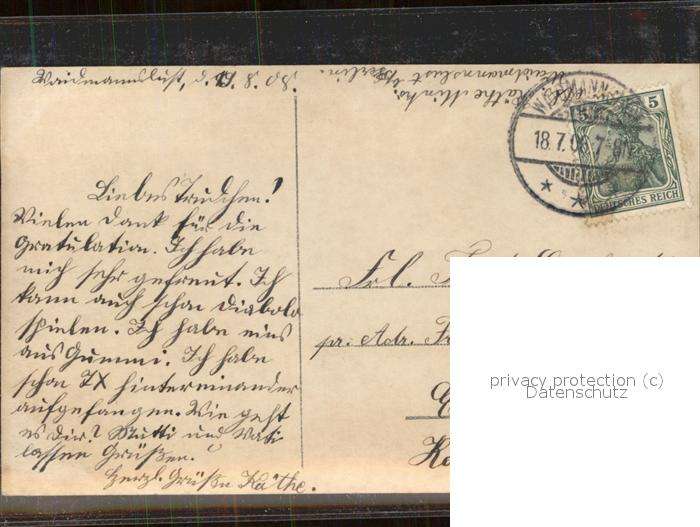 Waidmannslust, d. 17. 8. 08.
Käthe
Waidmannslust b/
Berlin.
18.7.08.7-8N
5
DEUTSCHES REICH
Liebes Trudchen!
Vielen Dank für die
Gratulation. Ich habe
mich sehr gefreut. Ich
kann auch schon Diabolo
spielen. Ich habe eins
aus Gummi. Ich habe
schon 7X hintereinander
aufgefangen. Wie geht
es Dir? Mutti und Vati
lassen Grüßen.
Herzl. Grüße Käthe.
Frl.
pr. Adr.
privacy protection (c)
Datenschutz